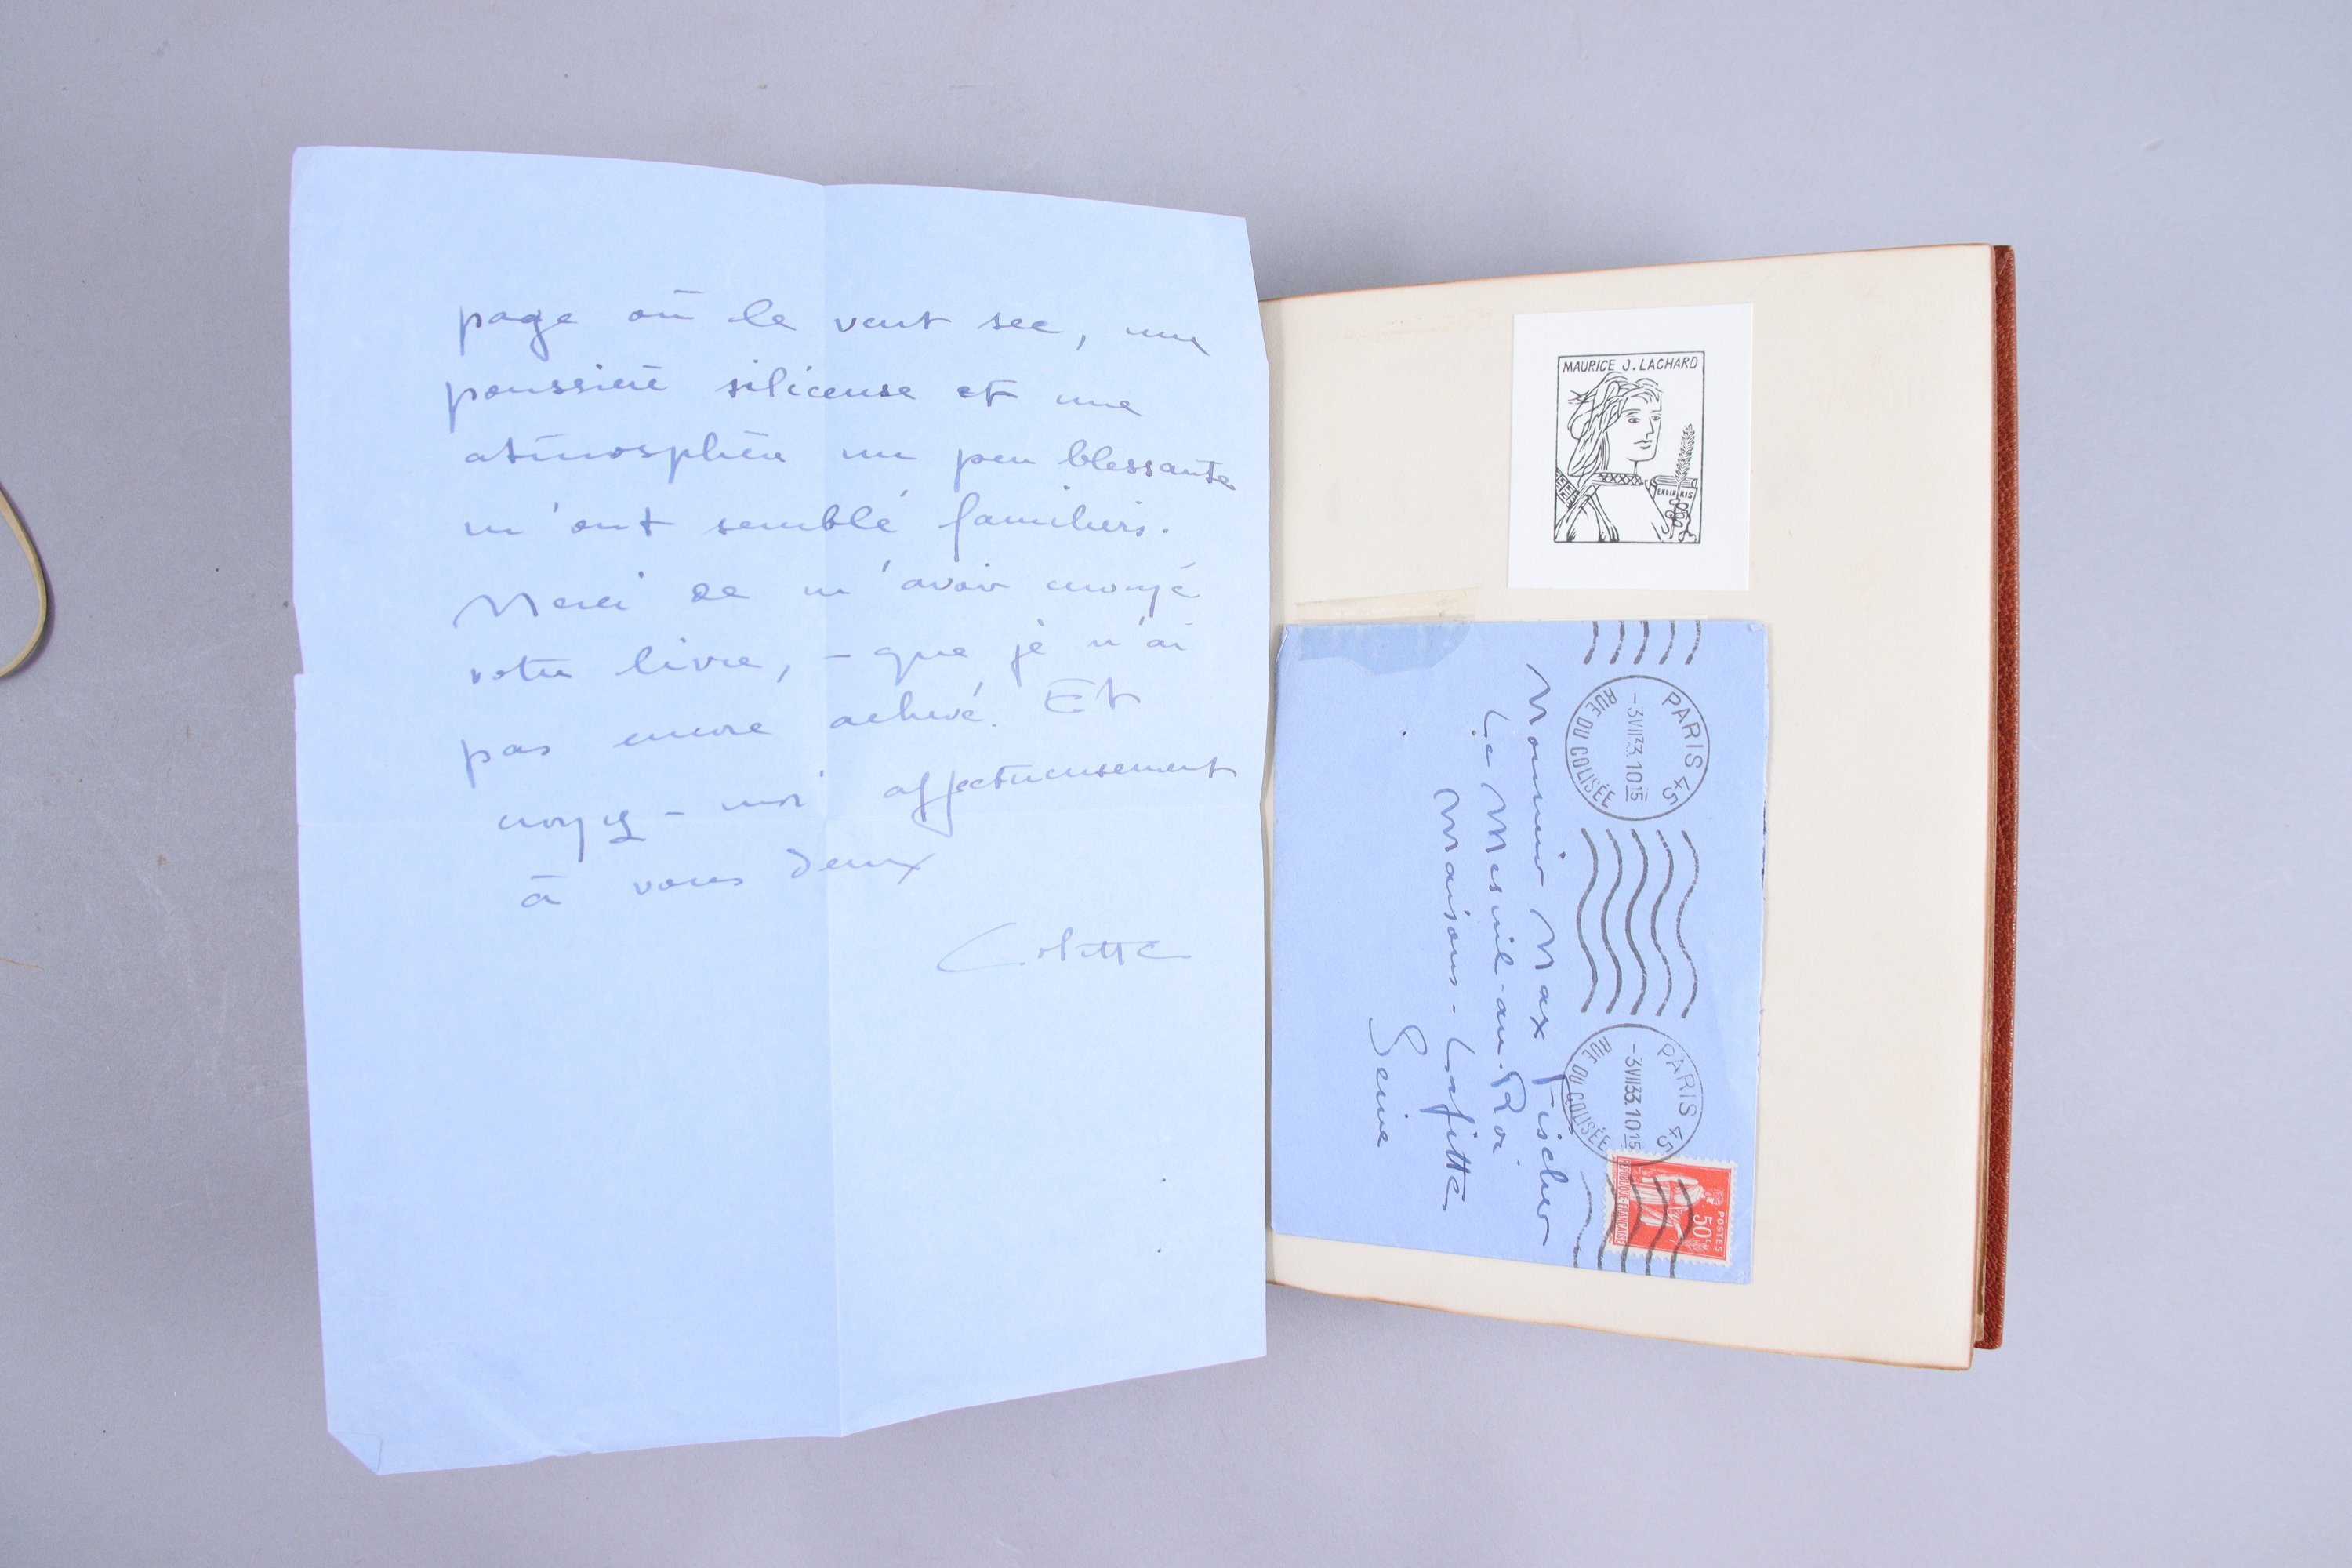 page où le vent sec, une
poussière siliceuse et une
atmosphère un peu blessante
m'ont semblé familiers.
Merci de m'avoir envoyé
votre livre, – que je n'ai
pas encore achevé. Et
croyez-moi affectueusement
à vous deux
Colette
MAURICE J. LACHARD
EXLIBRIS
PARIS 45
-3 VII 33 10 15
RUE DU COLISÉE
PARIS 45
-3 VII 33 10 15
RUE DU COLISÉE
POSTES
50c
REPUBLIQUE-FRANÇAISE
Monsieur Max Fischer
Le Mesnil-au-Roi
Maisons-Lafitte
Seine